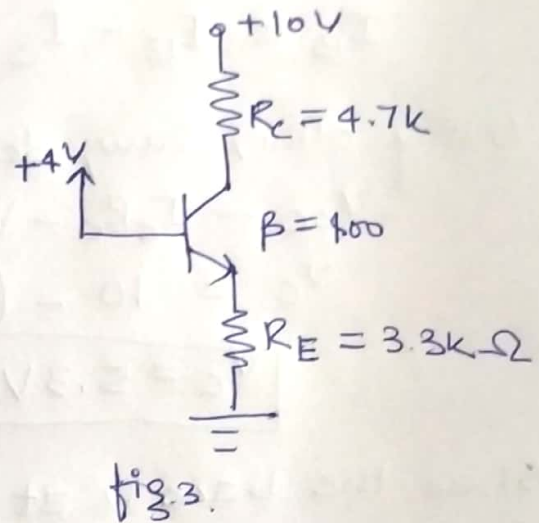 +10V
Rc = 4.7K
+4V
β = 100
RE = 3.3K Ω
fig.3.